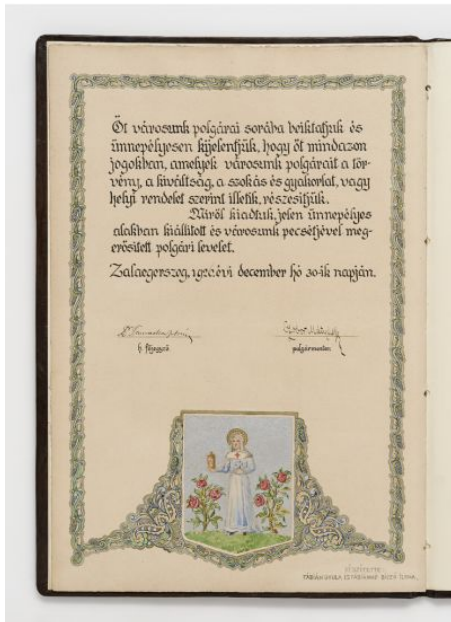 Őt városunk polgárai sorába beiktatjuk és
ünnepélyesen kijelentjük, hogy őt mindazon
jogokban, amelyek városunk polgárait a tör-
vény, a kiváltság, a szokás és gyakorlat, vagy
helyi rendelet szerint illetik, részesítjük.
Miről kiadtuk, jelen ünnepélyes
alakban kiállított és városunk pecsétjével meg-
erősített polgári levelet.
Zalaegerszeg, évi december hó 30-ik napján.
h. főjegyző
polgármester
KÉSZÍTETTE:
FÁBIÁN GYULA ÉS FÁBIÁNNÉ